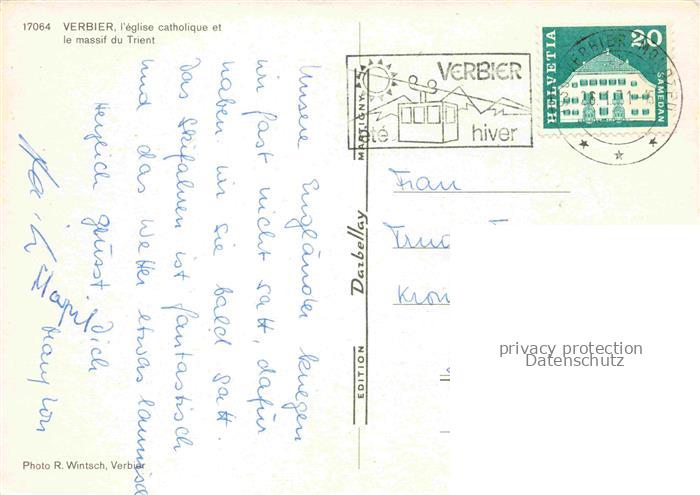 17064 VERBIER, l'église catholique et
le massif du Trient
Unsere Engländer kriegen
wir fast nicht satt, dafür
haben wir sie bald satt.
Das Skifahren ist fantastisch
und das Wetter etwas launisch
Herzlich grüsst Dich
Photo R. Wintsch, Verbier
EDITION Darbellay MARTIGNY
VERBIER
été hiver
HELVETIA
20
SAMEDAN
Frau
privacy protection
Datenschutz